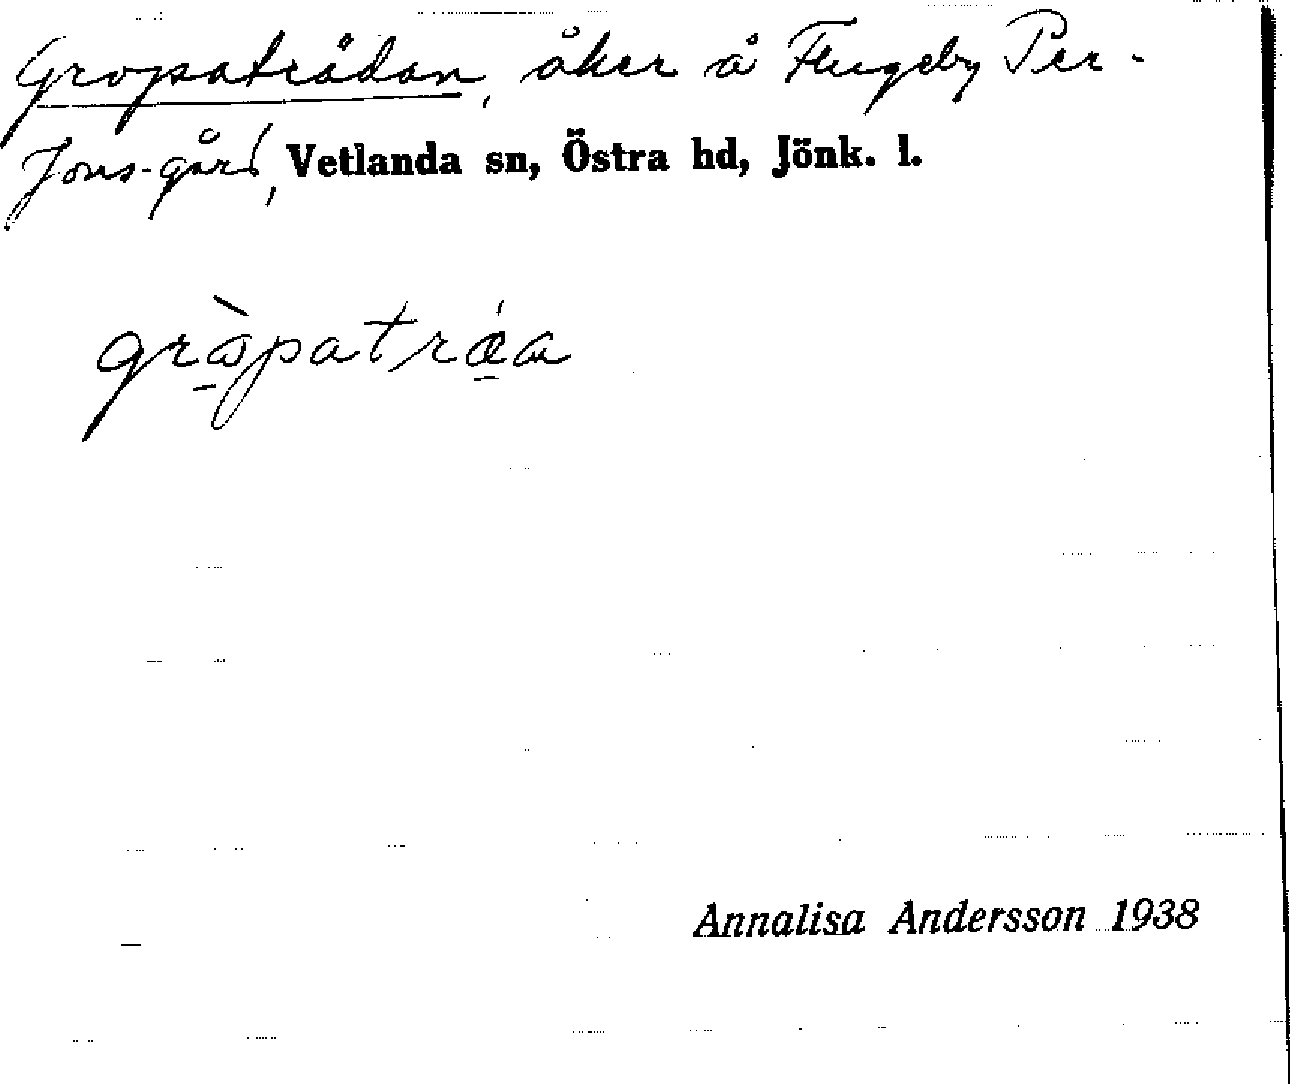 Gropaträdan, åker å Flugeby Per-
Jons-gård, Vetlanda sn, Östra hd, Jönk. l.
gròpatráa
Annalisa Andersson 1938